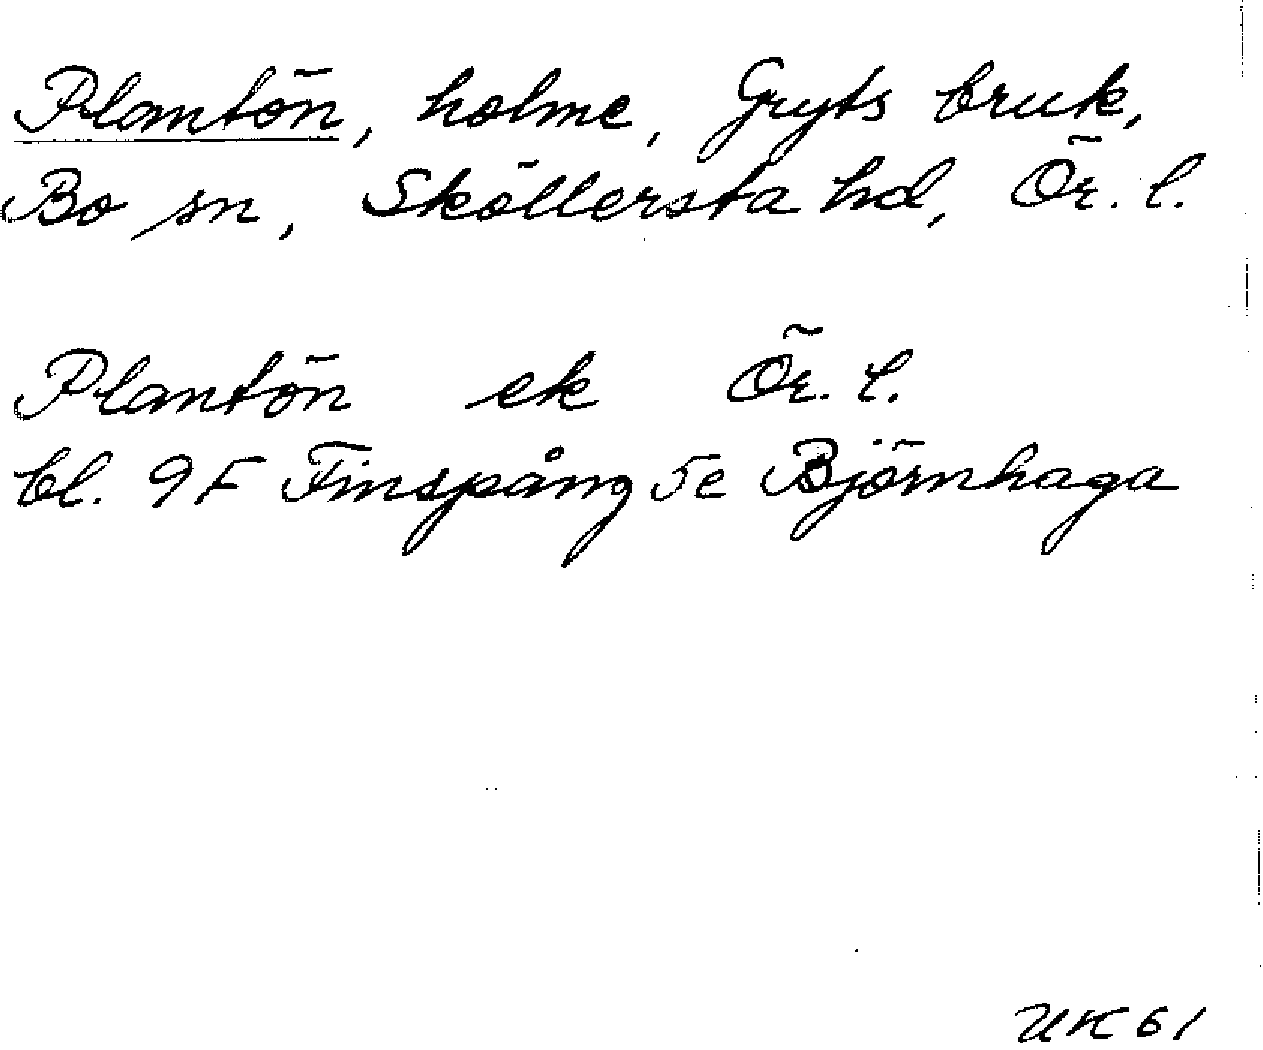 Plantön, holme, Gryts bruk,
Bo sn, Sköllersta hd, Ör. l.
Plantön ek Ör. l.
bl. 9F Finspång 5e Björnhaga
UK 61